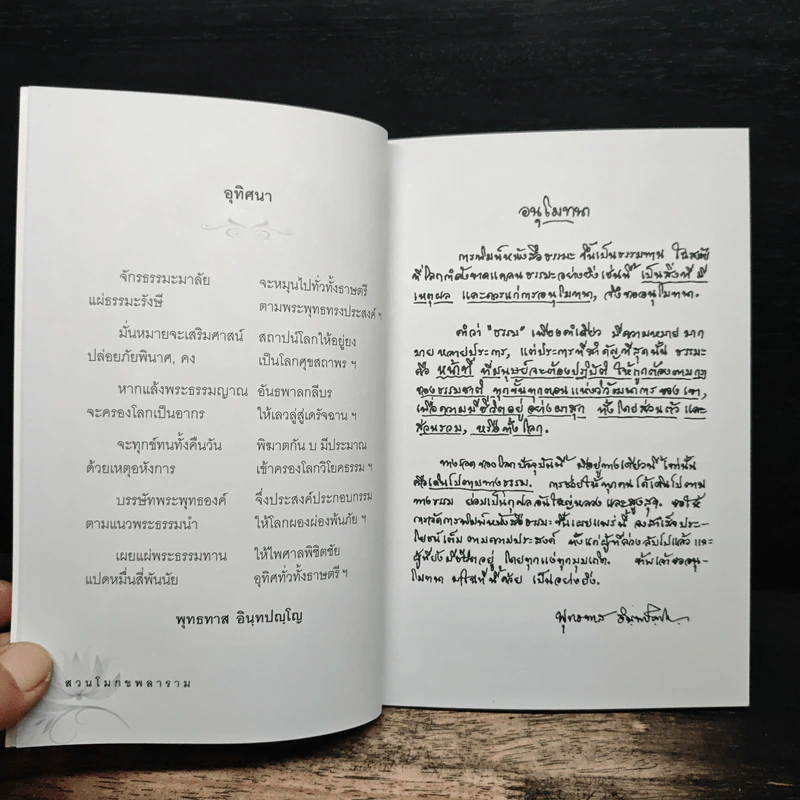 อุทิศนา
จักรธรรมะมาลัย จะหมุนไปทั่วทั้งธาษตรี
แผ่ธรรมะรังษี ตามพระพุทธทรงประสงค์ ฯ
มั่นหมายจะเสริมศาสน์ สถาปน์โลกให้อยู่ยง
ปล่อยภัยพินาศ, คง เป็นโลกศุขสถาพร ฯ
หากแล้งพระธรรมญาณ อันธพาลกลีบร
จะครองโลกเป็นอากร ให้เลวลู่สู่เดรัจฉาน ฯ
จะทุกข์ทนทั้งคืนวัน พิฆาตกัน บ มีประมาณ
ด้วยเหตุอหังการ เข้าครองโลกวิโยคธรรม ฯ
บรรษัทพระพุทธองค์ จึ่งประสงค์ประกอบกรรม
ตามแนวพระธรรมนำ ให้โลกผองผ่องพ้นภัย ฯ
เผยแผ่พระธรรมทาน ให้ไพศาลพิชิตชัย
แปดหมื่นสี่พันนัย อุทิศทั่วทั้งธาษตรี ฯ
พุทธทาส อินฺทปญฺโญ
สวนโมกขพลาราม
อนุโมทนา
การพิมพ์หนังสือธรรมะ ขึ้นเป็นธรรมทาน ในสมัย
ที่โลกกำลังขาดแคลนธรรมะอย่างยิ่งเช่นนี้ เป็นสิ่งที่มี
เหตุผล และควรแก่การอนุโมทนา, จึงขออนุโมทนา.
คำว่า "ธรรม" เพียงคำเดียว มีความหมายมาก
มายหลายประการ, แต่ประการที่สำคัญที่สุดนั้น ธรรมะ
คือ หน้าที่ ที่มนุษย์จะต้องปฏิบัติ ให้ถูกต้องตามกฎ
ของธรรมชาติ ทุกขั้นทุกตอน แห่งวิวัฒนาการ ของเขา,
เพื่อความมีชีวิตอยู่ อย่างผาสุก ทั้งโดยส่วนตัว และ
ส่วนรวม, หรือทั้งโลก.
ทางรอด ของโลกปัจจุบันนี้ มีอยู่ทางเดียวนี้ เท่านั้น
คือเดินไปตามทางธรรม. การช่วยให้ทุกคน ได้เดินไปตาม
ทางธรรม ย่อมเป็นกุศลอันใหญ่หลวง และสูงสุด. ขอให้
การจัดการพิมพ์หนังสือธรรมะ ขึ้นเผยแพร่นี้ จงสำเร็จประ-
โยชน์เต็ม ตามความประสงค์ ทั้งแก่ผู้ที่ล่วงลับไปแล้ว และ
ผู้ที่ยังมีชีวิตอยู่ โดยทุกแง่ทุกมุมเถิด. ข้าพเจ้าขออนุ-
โมทนา มา ณ ที่นี้ด้วย เป็นอย่างยิ่ง.
พุทธทาส อินฺทปญฺโญ